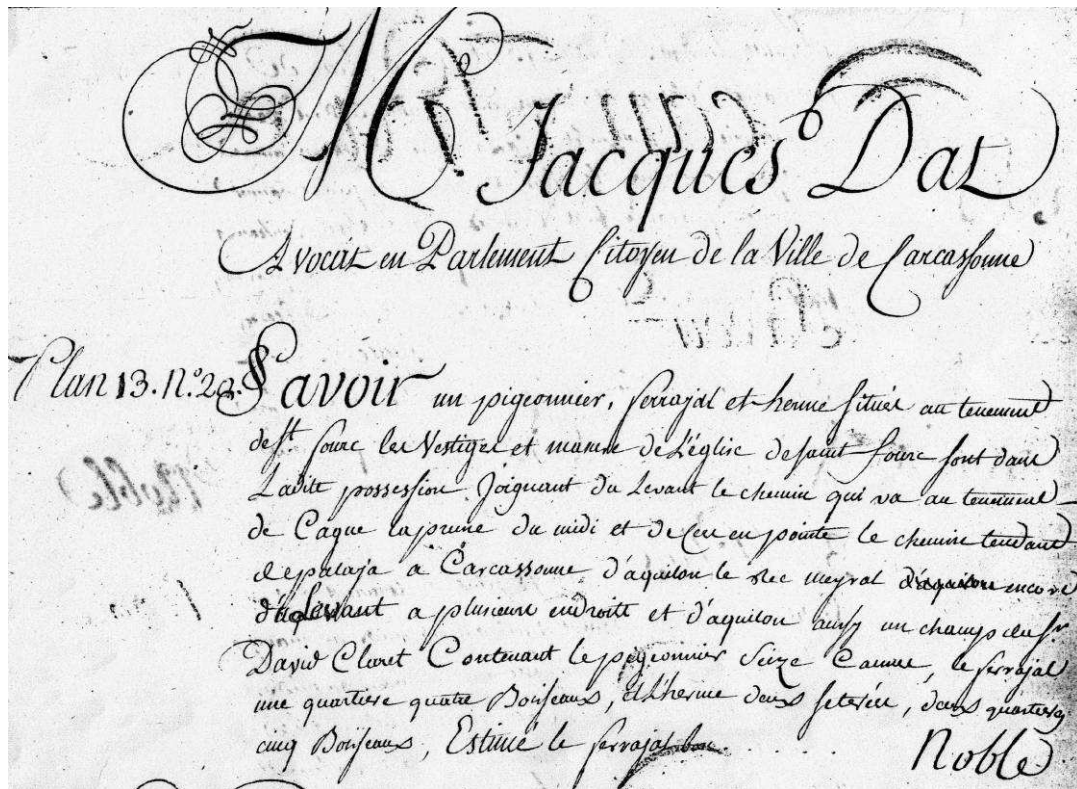 M. Jacques Dat
Avocat en Parlement Citoyen de la Ville de Carcassonne
Plan 13. N.º 28. Savoir un pigeonnier, ferrajal et herme situés au tenement
de St. fourc les Vestiges et masure de L'église de saint fourc sont dans
Ladite possession. Joignant du Levant le chemin qui va au tenement
de Caque laprune du midi et de Cers en pointe le chemin tendant
de palaja a Carcassonne d'aquilon le Rec meyral d'aquilon encore
Levant a plusieurs endroits et d'aquilon aussy un champ du Sr
David Claret Contenant le pigeonnier Seize Cannes, le ferrajal
une quartiere quatre Boisseaux, et L'herme deux seterées, deux quartieres
cinq Boisseaux, Estimé le ferrajal bon.
Noble